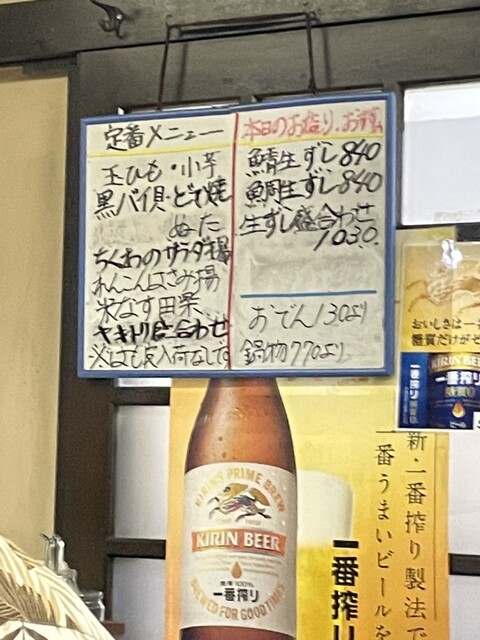 定番メニュー
玉ひも・小芋
黒バイ貝・どて焼
ぬた
ちくわのサラダ揚
れんこんはさみ揚
水なす田楽
ヤキトリ盛合わせ
本日のお造り、お寿し
鯖生ずし840
鯛生ずし840
生ずし盛合わせ
1030.
おでん130より
鍋物770より
KIRIN'S PRIME BREW
KIRIN BEER
麦芽100%
一番搾り
BREWED FOR GOOD TIMES
新・一番搾り製法で
一番うまいビールを
一番搾り
おいしさは一番
糖質だけがゼ
KIRIN BEE
一番搾り
糖質0
一番搾り 糖質0